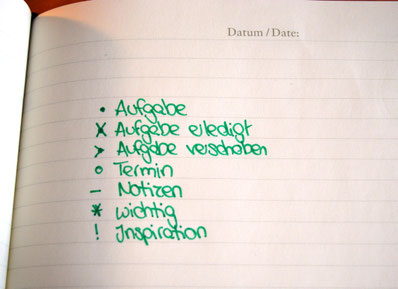 Datum / Date:
• Aufgabe
X Aufgabe erledigt
> Aufgabe verschoben
o Termin
– Notizen
* wichtig
! Inspiration